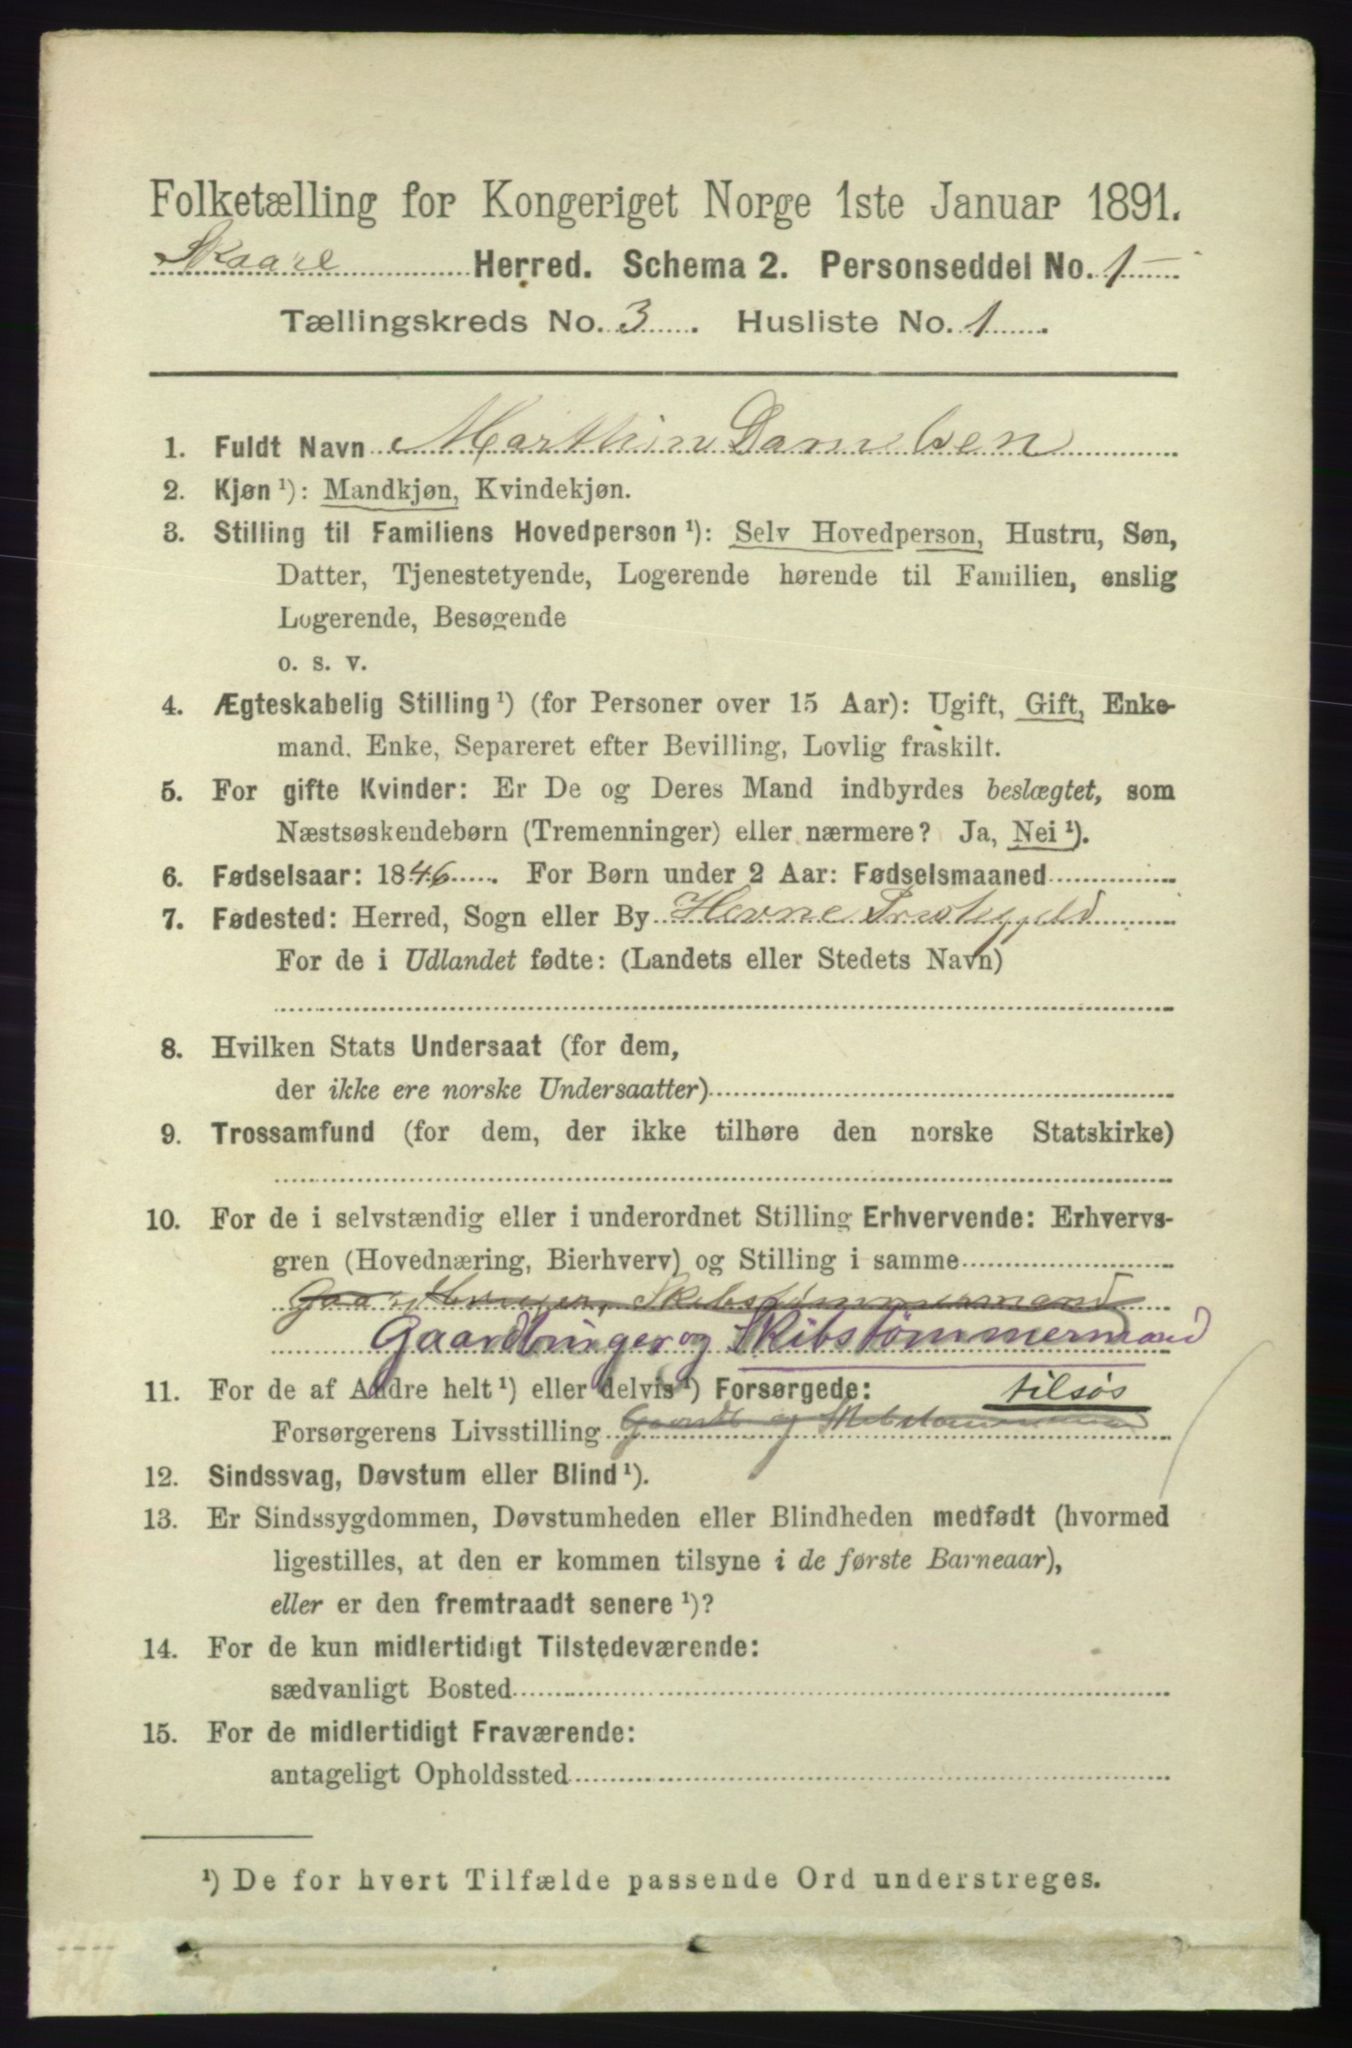 Folketælling for Kongeriget Norge 1ste Januar 1891.
Skaare Herred. Schema 2. Personseddel No. 1
Tællingskreds No. 3. Husliste No. 1.
1. Fuldt Navn Danielsen
2. Kjøn ¹): Mandkjøn, Kvindekjøn.
3. Stilling til Familiens Hovedperson ¹): Selv Hovedperson, Hustru, Søn,
Datter, Tjenestetyende, Logerende hørende til Familien, enslig
Logerende, Besøgende
o. s. v.
4. Ægteskabelig Stilling ¹) (for Personer over 15 Aar): Ugift, Gift, Enke-
mand, Enke, Separeret efter Bevilling, Lovlig fraskilt.
5. For gifte Kvinder: Er De og Deres Mand indbyrdes beslægtet, som
Næstsøskendebørn (Tremenninger) eller nærmere? Ja, Nei ¹).
6. Fødselsaar: 1846. For Børn under 2 Aar: Fødselsmaaned
7. Fødested: Herred, Sogn eller By Hevne
For de i Udlandet fødte: (Landets eller Stedets Navn)
8. Hvilken Stats Undersaat (for dem,
der ikke ere norske Undersaatter)
9. Trossamfund (for dem, der ikke tilhøre den norske Statskirke)
10. For de i selvstændig eller i underordnet Stilling Erhvervende: Erhvervs-
gren (Hovednæring, Bierhverv) og Stilling i samme
Gaardbruger, Skibstømmermand
Gaardbruger og Skibstømmermand
11. For de af Andre helt ¹) eller delvis ¹) Forsørgede: tilsøs
Forsørgerens Livsstilling Gaardb og Skibstømmermand
12. Sindssvag, Døvstum eller Blind ¹).
13. Er Sindssygdommen, Døvstumheden eller Blindheden medfødt (hvormed
ligestilles, at den er kommen tilsyne i de første Barneaar),
eller er den fremtraadt senere ¹)?
14. For de kun midlertidigt Tilstedeværende:
sædvanligt Bosted
15. For de midlertidigt Fraværende:
antageligt Opholdssted
¹) De for hvert Tilfælde passende Ord understreges.